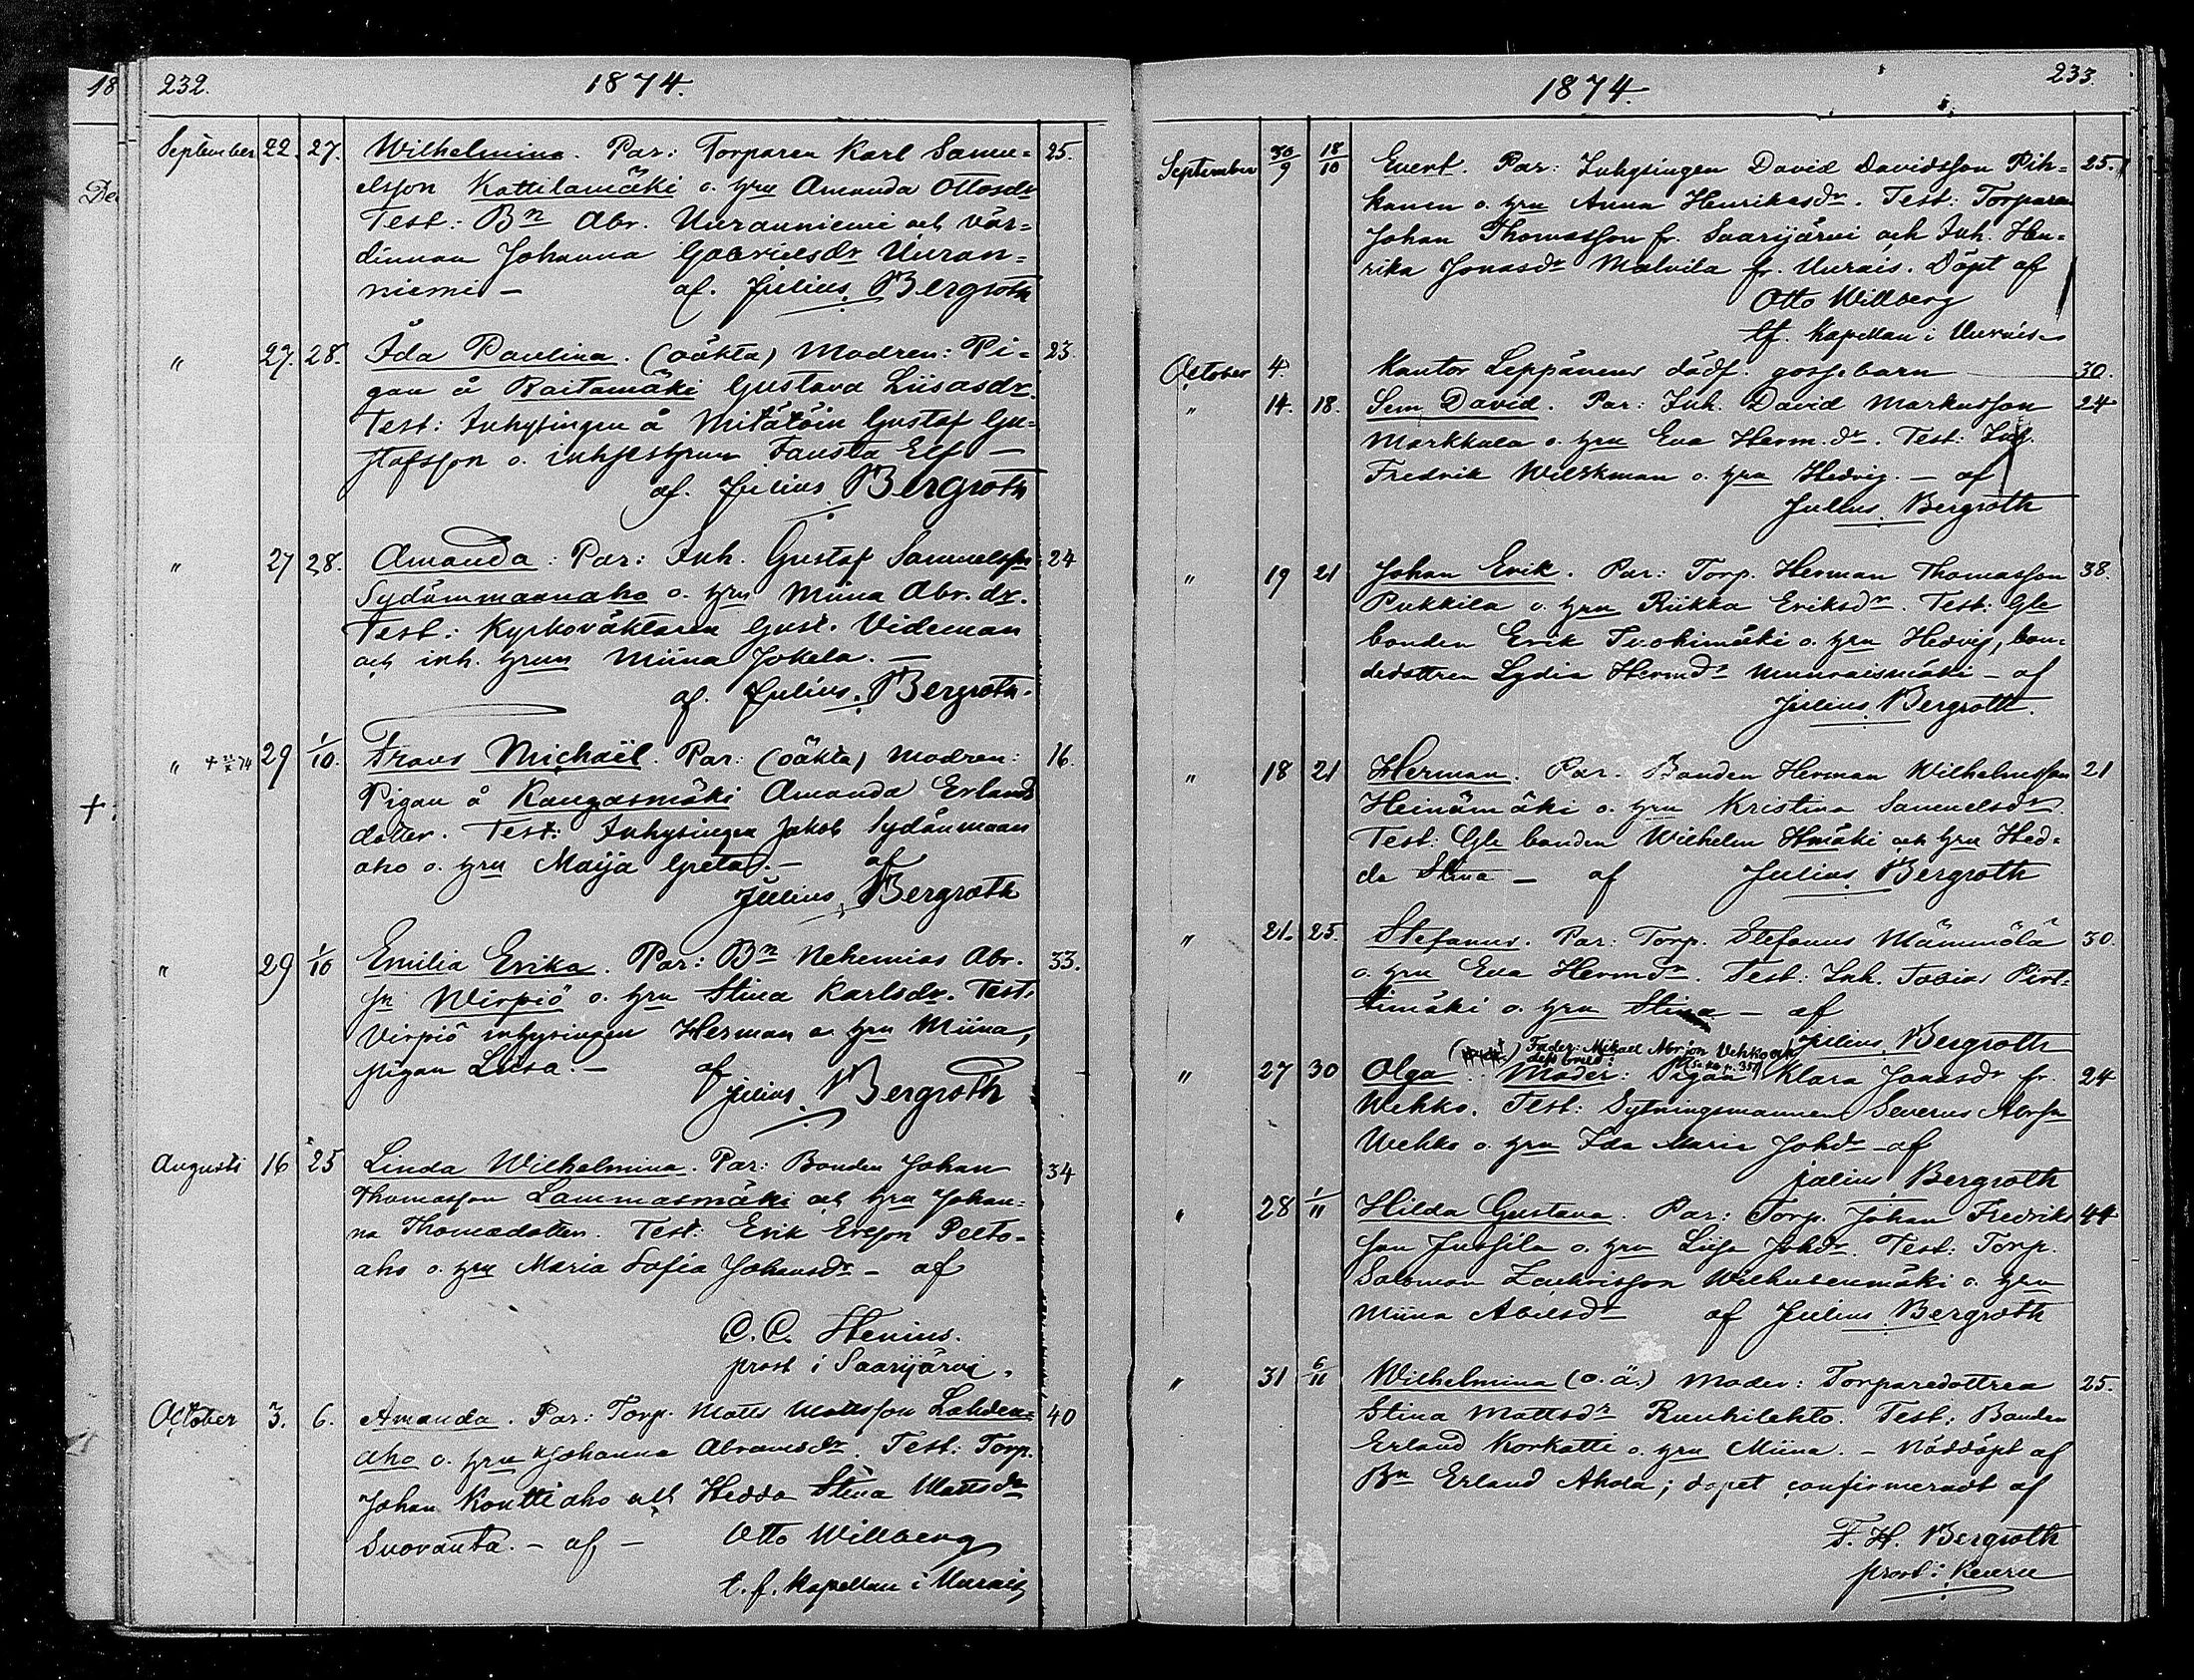 18
De
+
232.
1874.
September 22. 27. Wilhelmina. Par: Torparen Karl Samu= 25.
elsson Kattilamäki o. hru Amanda Ottosdr
Test: Bn Abr. Uuranniemi och vär=
dinnan Johanna Gabrielsdr Uuran=
niemi – af. Julius Bergroth
" 27. 28. Ida Paulina. (oäkta) Modren: Pi= 23.
gan å Raitamäki Gustava Liisasdr.
Test: Inhysingen å Mitätöin Gustaf Gu=
stafsson o. inhyseshrun Fausta Elf –
af. Julius Bergroth
" 27 28. Amanda: Par: Inh. Gustaf Samuelsson 24
Sydänmaanaho o. hru Miina Abr.dr.
Test: Kyrkoväktaren Gust. Videman
och inh. hrun Miina Jokela. –
af. Julius Bergroth.
" + 74 29 1/10. Frans Michaël. Par: (oäkta) Modren: 16.
Pigan å Kangasmäki Amanda Erlands
dotter. Test: Inhysingen Jakob Sydänmaan
aho o. hru Maija Greta. – af
Julius Bergroth
" 29 1/10 Emilia Erika. Par: Bn Nehemias Abr. 33.
sn Wirpiö o. hru Stina Karlsdr. Test:
Virpiö inhysingen Herman o. hru Miina,
pigan Liisa. – af
Julius Bergroth
Augusti 16 25 Linda Wilhelmina. Par: Bonden Johan 34
Thomasson Lammasmäki och hru Johan=
na Thomasdotter. Test: Erik Ersson Pelto=
aho o. hru Maria Sofia Johansdr – af
C. C. Stenius.
prost i Saarijärvi.
October 3. 6. Amanda. Par: Torp. Matts Mattsson Lahden= 40
aho o. hru Johanna Abramsdr. Test: Torp.
Johan Kontti aho och Hedda Stina Mattsdr
Suoranta. – af – Otto Willberg
t. f. Kapellan i Uurais
1874.
233.
September 30/9 18/10 Evert. Par: Inhysingen David Davidsson Pih= 25.
kanen o. hru Anna Henriksdr. Test: Torparen
Johan Thomasson fr. Saarijärvi och Inh. Hen=
rika Jonasdr Malvila fr. Uurais. Döpt af
Otto Willberg
tf. Kapellan i Uurais
October 4. Kantor Leppänens dödf. gossebarn 30.
" 14. 18. Sem David. Par: Inh. David Markusson 24
Markkula o. hru Eva Herm.dr. Test: Inh.
Fredrik Wilskman o. hru Hedvig. – af
Julius Bergroth
" 19 21 Johan Erik. Par: Torp. Herman Thomasson 38.
Pukkila o. hru Riikka Eriksdr. Test: Gle
bonden Erik Tuohimäki o. hru Hedvig, bon=
dedottren Lydia Hermdr Muuraismäki – af
Julius Bergroth.
" 18 21 Herman. Par. Bonden Herman Wilhelmsson 21
Heinämäki o. hru Kristina Samuelsdr.
Test: Gle bonden Wilhelm Hmäki och hru Hed=
da Stina – af Julius Bergroth
" 21. 25. Stefanus. Par: Torp. Stefanus Mämmölä 30.
o. hru Eva Hermdr. Test: Inh. Tobias Pirt=
timäki o. hru Stina – af
Julius Bergroth
Fader: Mikael Abrson Vehko och
" 27 30 Olga. Moder: Pigan Klara Jonasdr fr. 24
Wehko. Test: Sytningsmannen Severus Abrsn
Wehko o. hru Ida Maria Johdr – af
Julius Bergroth
" 28 1/11 Hilda Gustava. Par: Torp. Johan Fredriks 44
son Jussila o. hru Liisa Johdr. Test: Torp.
Salomon Zachrisson Wilhusenmäki o. hru
Miina Abelsdr af Julius Bergroth
" 31 6/11 Wilhelmina (o.ä.) Moder: Torparedottren 25.
Stina Mattsdr Ruuhilehto. Test: Bonden
Erland Korkatti o. hru Miina. – Nöddöpt af
Bn Erland Ahola; dopet confirmeradt af
F. H. Bergroth
prost i Keuru